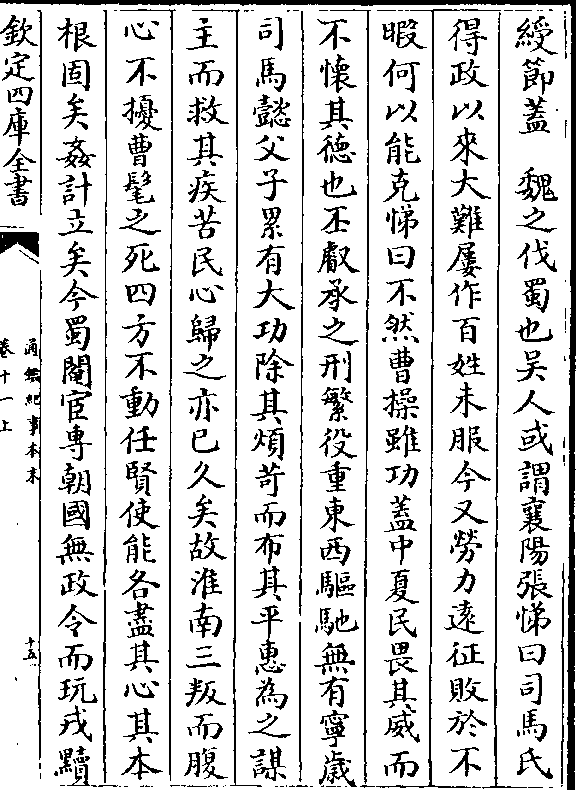 綬節蓋　魏之伐蜀也吳人或謂襄陽張悌曰司馬氏
得政以來大難屢作百姓未服今又勞力遠征敗於不
暇何以能克悌曰不然曹操雖功蓋中夏民畏其威而
不懷其徳也丕叡承之刑繁役重東西驅馳無有寧歳
司馬懿父子累有大功除其煩苛而布其平惠為之謀
主而救其疾苦民心歸之亦已久矣故淮南三叛而腹
心不擾曹髦之死四方不動任賢使能各盡其心其本
根固矣姦計立矣今蜀閹宦専朝國無政令而玩戎黷
欽定四庫全書
通鑑紀事本末
卷十一上
十五